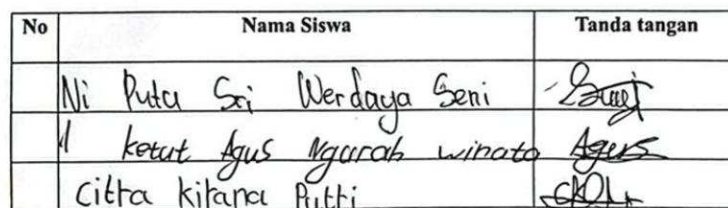 No Nama Siswa Tanda tangan
Ni Putu Sri Werdaya Seni
I ketut Agus Ngurah winata Agus
Citra kirana Putri